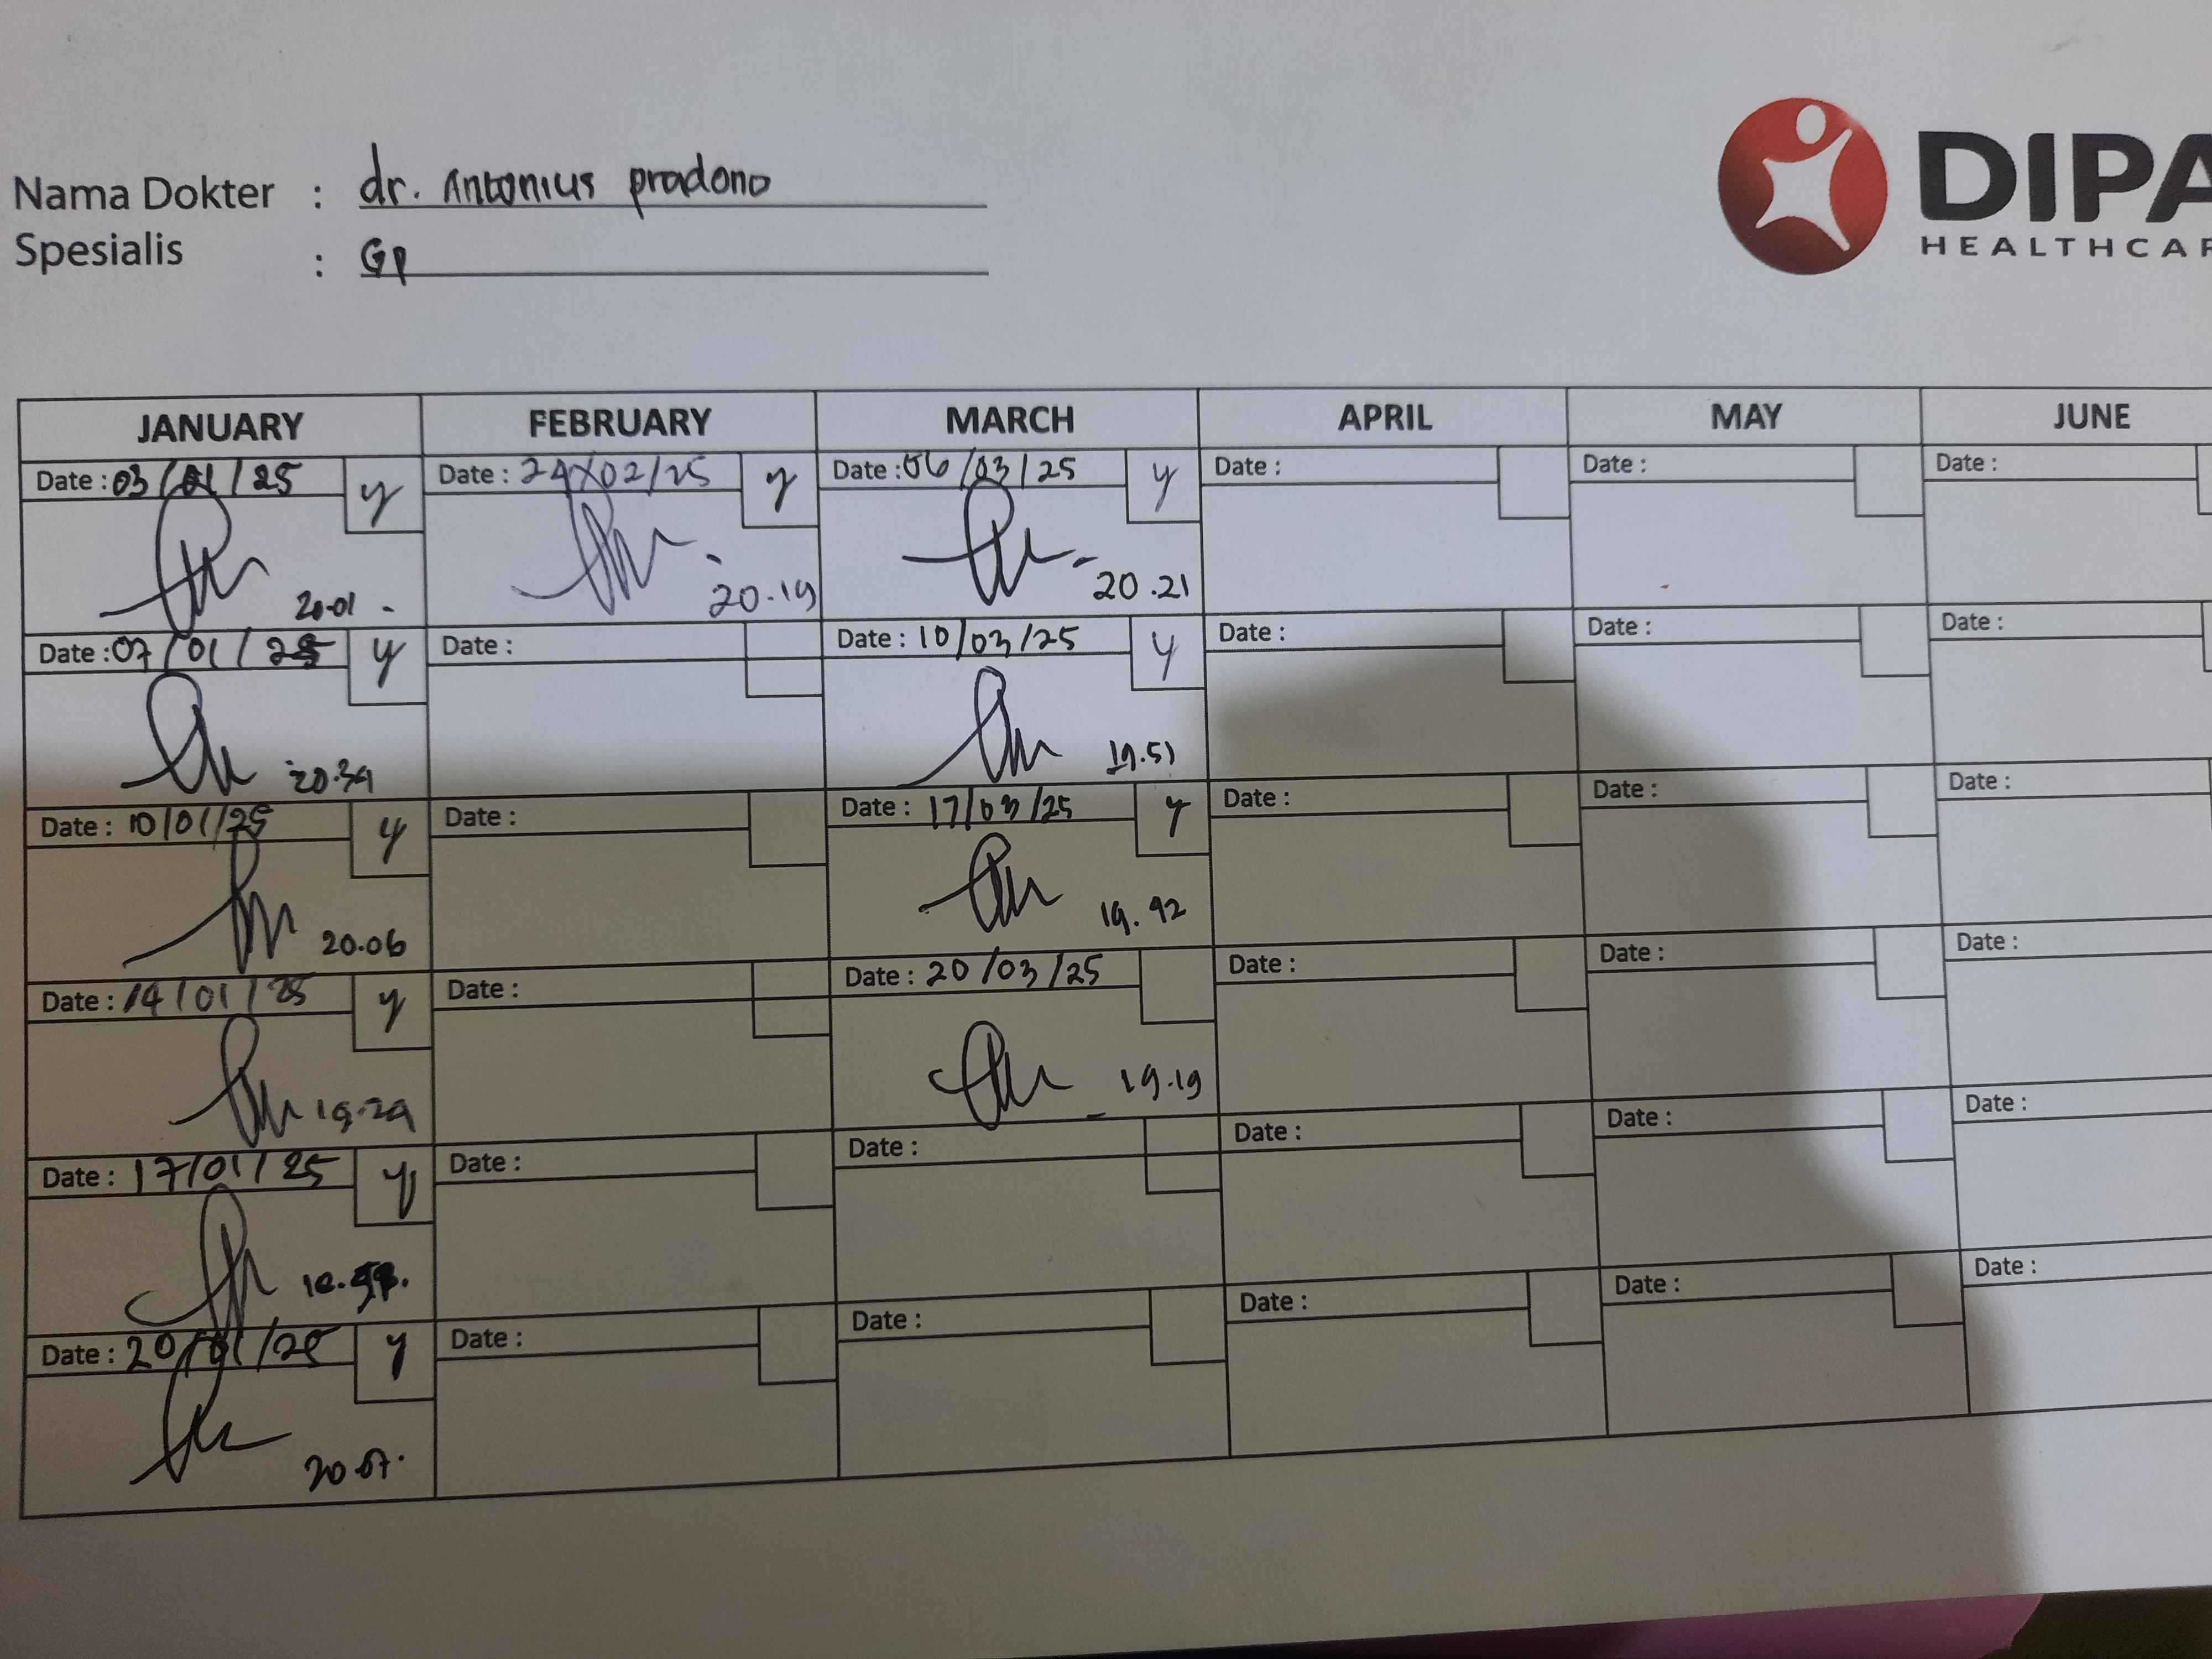 Nama Dokter : dr. Antonius pradono
Spesialis : GP
DIPA
HEALTHCAR
JANUARY FEBRUARY MARCH APRIL MAY JUNE
Date : 03/01/25 y Date : 24/02/25 y Date : 06/03/25 y Date : Date : Date :
20.01 - 20.19 20.21
Date : 07/01/25 y Date : Date : 10/03/25 y Date : Date : Date :
20.39 19.51
Date : 10/01/25 y Date : Date : 17/03/25 y Date : Date : Date :
20.06 19.42
Date : 14/01/25 y Date : Date : 20/03/25 Date : Date : Date :
19.29 19.19
Date : 17/01/25 y Date : Date : Date : Date : Date :
Date : 20/01/25 y Date : Date : Date : Date : Date :
20.07.